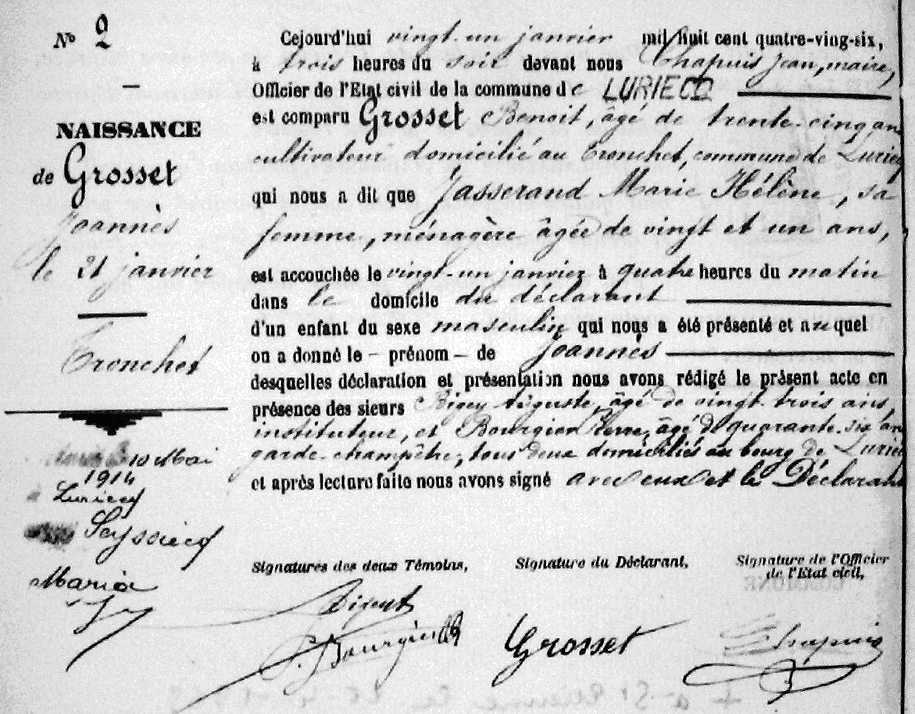 N° 2
NAISSANCE
de Grosset
Joannès
le 21 janvier
Tronchet
10 Mai
1914
à Luriecq
Seyssiecq
Maria
Cejourd'hui vingt-un janvier mil huit cent quatre-ving-six,
à trois heures du soir devant nous Chapuis Jean, maire,
Officier de l'Etat civil de la commune de LURIECQ
est comparu Grosset Benoit, âgé de trente cinq an
cultivateur domicilié au Tronchet, commune de Luriecq
qui nous a dit que Jasserand Marie Hélène, sa
femme, ménagère âgée de vingt et un ans,
est accouchée le vingt-un janvier à quatre heures du matin
dans le domicile du déclarant
d'un enfant du sexe masculin qui nous a été présenté et auquel
on a donné le prénom de Joannès
desquelles déclaration et présentation nous avons rédigé le présent acte en
présence des sieurs Auguste, âgé de vingt trois ans,
instituteur, et Bourgier Pierre, âgé de quarante six an
garde-champêtre, tous deux domiciliés au bourg de Luriecq
et après lecture faite nous avons signé avec eux et le Déclarant
Signatures des deux Témoins,
Signature du Déclarant,
Signature de l'Officier
de l'Etat civil,
Grosset
Chapuis